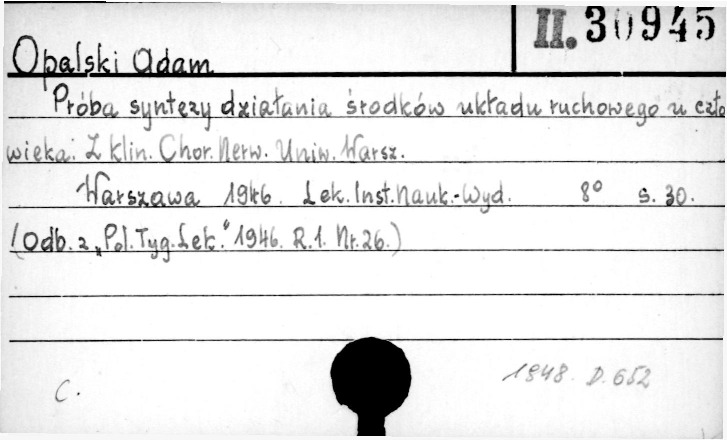 II. 30945
Opalski Adam
Próba syntezy działania środków układu ruchowego u czło
wieka. Z Klin. Chor. Nerw. Uniw. Warsz.
Warszawa 1946. Lek. Inst. Nauk.-Wyd. 8° s. 30.
(Odb. z „Pol. Tyg. Lek." 1946. R. 1. Nr. 26.)
1948. D. 652
C.